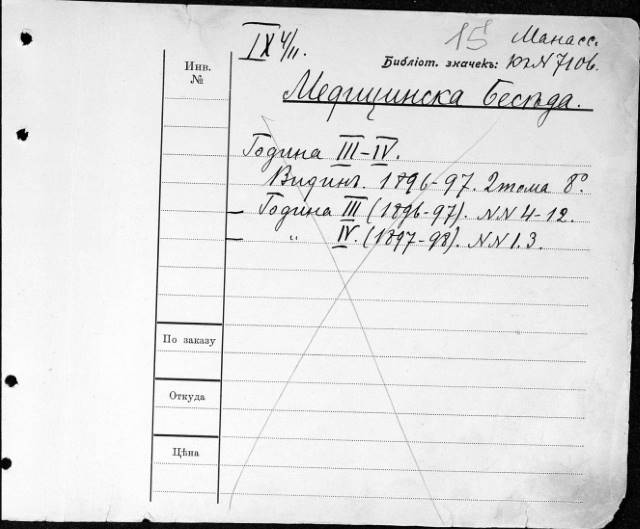 IX 4/II. 15 Манасс.
Инв. №
Библіот. значекъ: Юг N 7106.
Медицинска Бесѣда.
Година III-IV.
Видинъ. 1896-97. 2 тома 8º.
— Година III (1896-97). NN 4-12.
— " IV. (1897-98). NN 1.3.
По заказу
Откуда
Цѣна